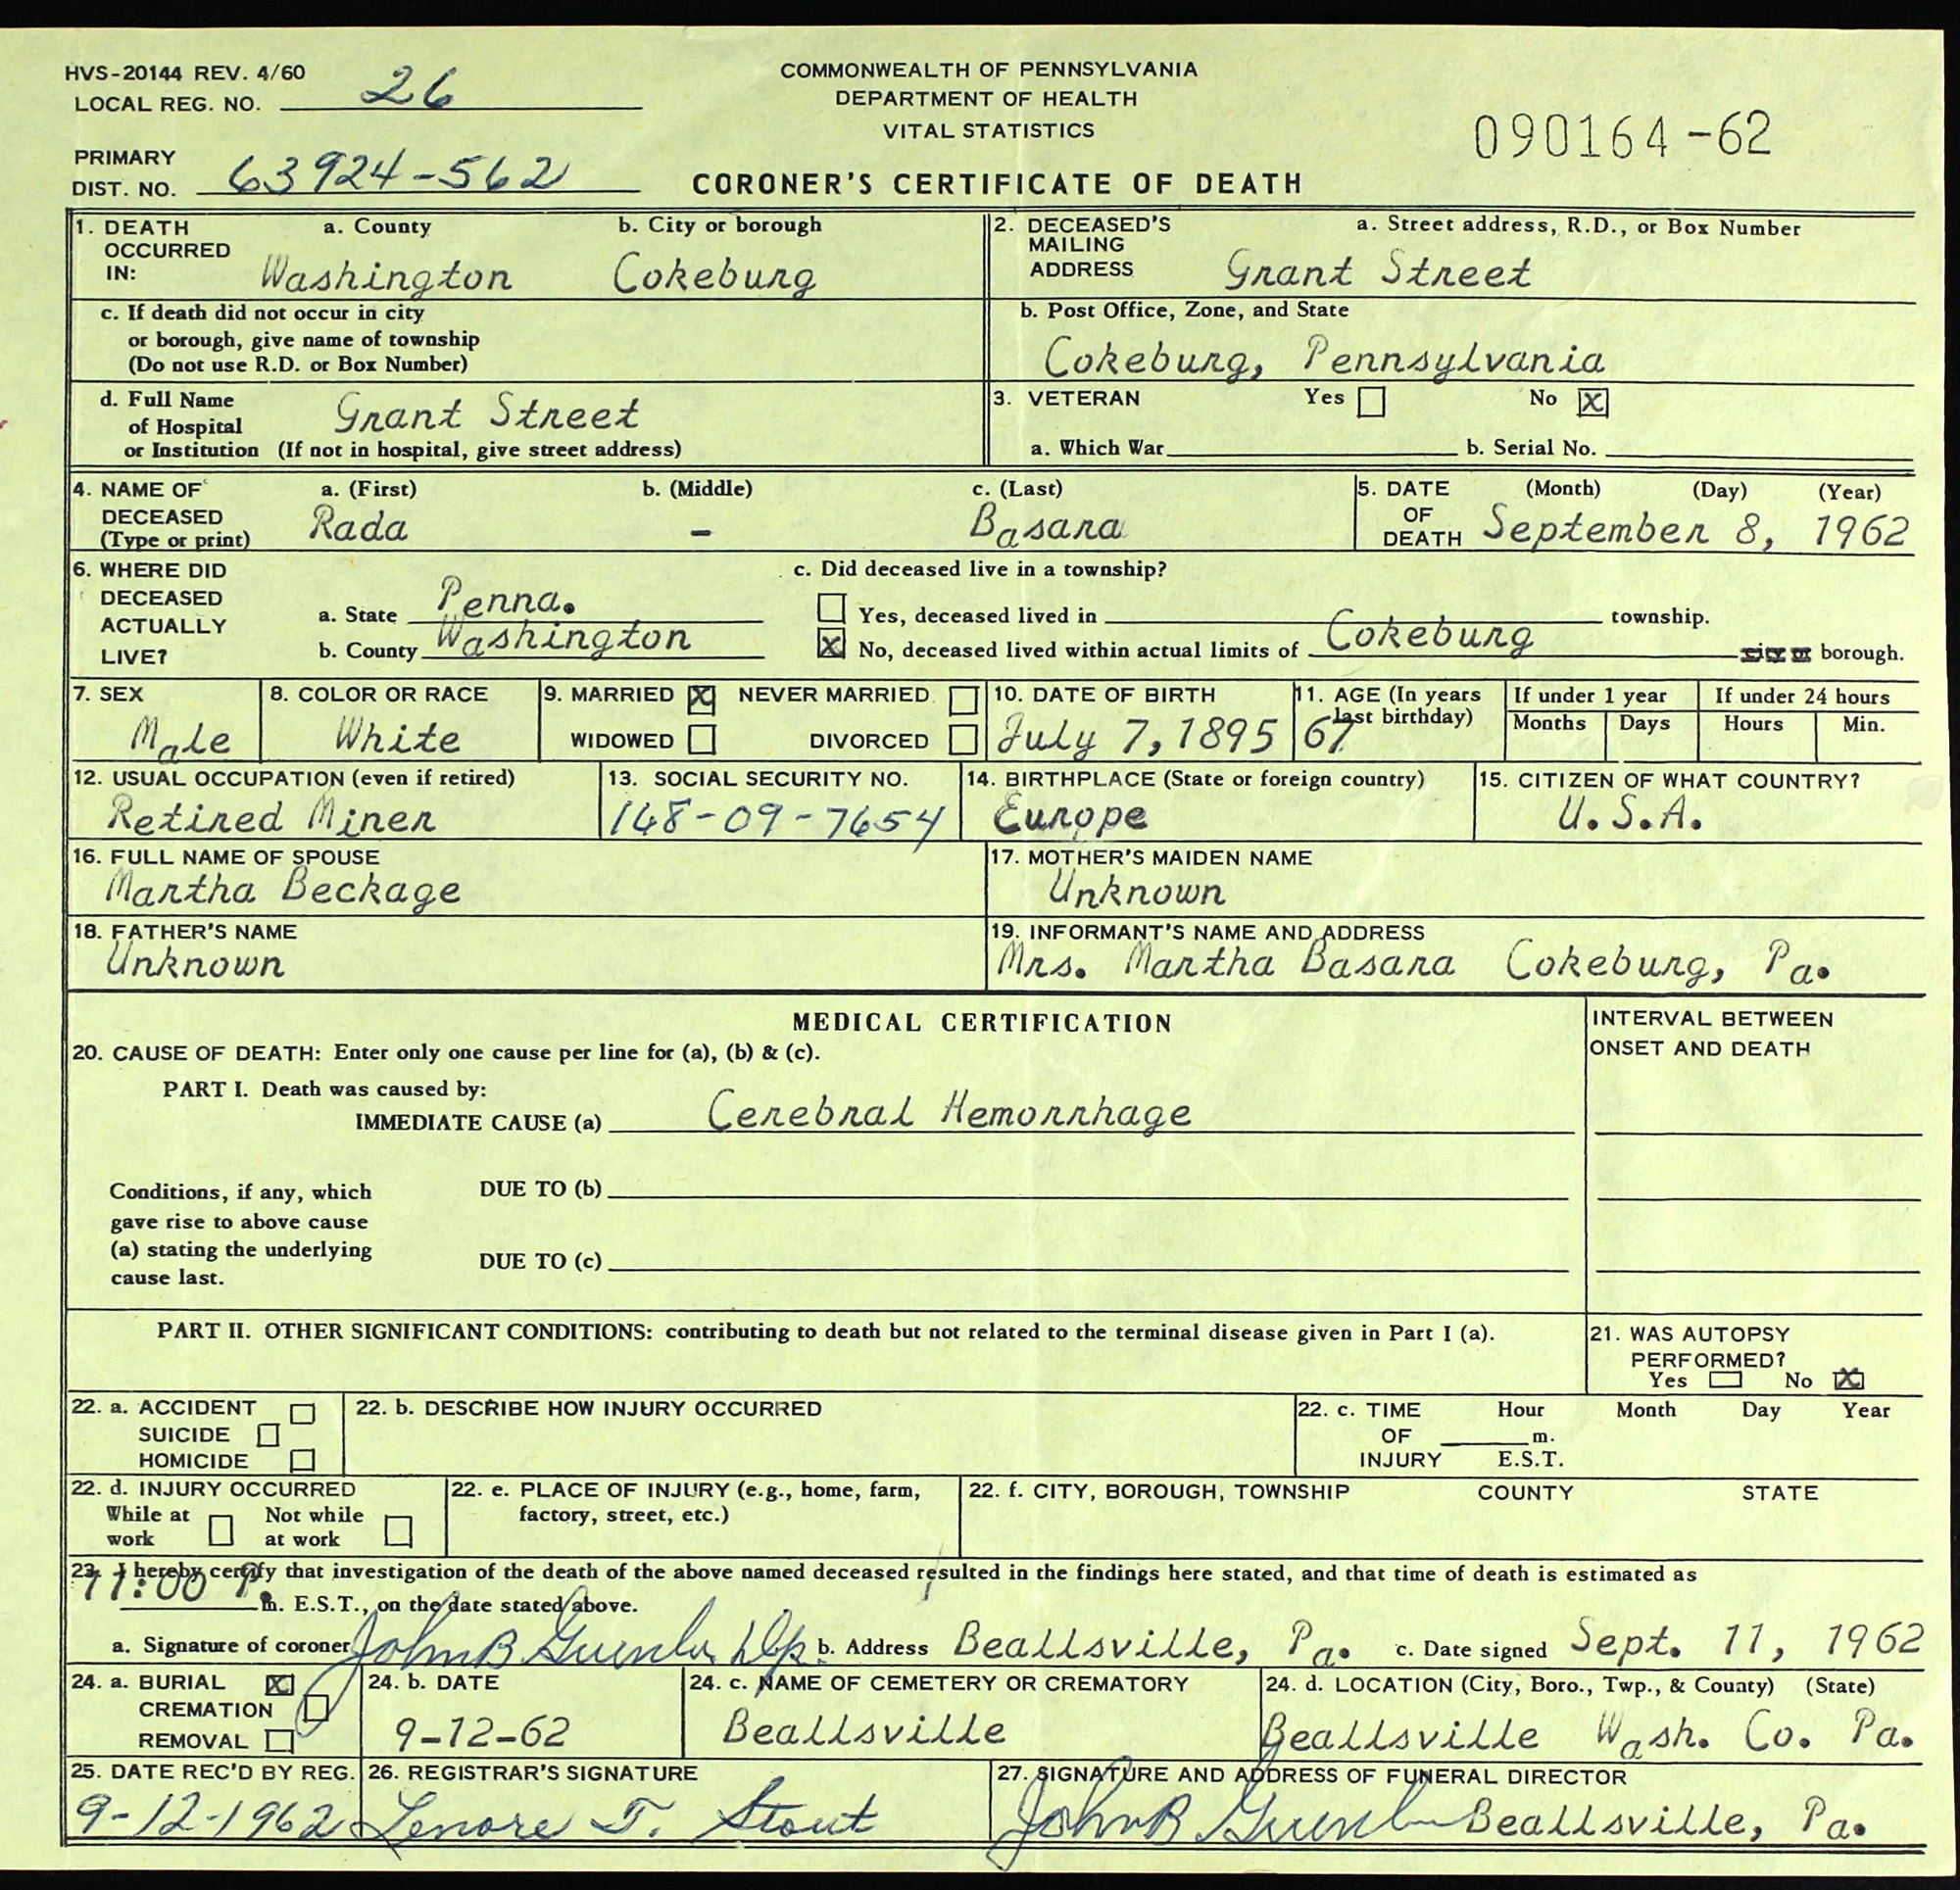 HVS-20144 REV. 4/60
LOCAL REG. NO. 26
COMMONWEALTH OF PENNSYLVANIA
DEPARTMENT OF HEALTH
VITAL STATISTICS
090164-62
PRIMARY
DIST. NO. 63924-562
CORONER'S CERTIFICATE OF DEATH
1. DEATH OCCURRED IN: a. County b. City or borough
Washington Cokeburg
2. DECEASED'S MAILING ADDRESS a. Street address, R.D., or Box Number
Grant Street
c. If death did not occur in city
or borough, give name of township
(Do not use R.D. or Box Number)
b. Post Office, Zone, and State
Cokeburg, Pennsylvania
d. Full Name
of Hospital Grant Street
or Institution (If not in hospital, give street address)
3. VETERAN Yes No X
a. Which War b. Serial No.
4. NAME OF DECEASED (Type or print) a. (First) b. (Middle) c. (Last)
Rada - Basara
5. DATE OF DEATH (Month) (Day) (Year)
September 8, 1962
6. WHERE DID DECEASED ACTUALLY LIVE?
a. State Penna.
b. County Washington
c. Did deceased live in a township?
Yes, deceased lived in township.
X No, deceased lived within actual limits of Cokeburg city or borough.
7. SEX
Male
8. COLOR OR RACE
White
9. MARRIED X NEVER MARRIED
WIDOWED DIVORCED
10. DATE OF BIRTH
July 7, 1895
11. AGE (In years last birthday)
67
If under 1 year
Months Days
If under 24 hours
Hours Min.
12. USUAL OCCUPATION (even if retired)
Retired Miner
13. SOCIAL SECURITY NO.
168-09-7654
14. BIRTHPLACE (State or foreign country)
Europe
15. CITIZEN OF WHAT COUNTRY?
U.S.A.
16. FULL NAME OF SPOUSE
Martha Beckage
17. MOTHER'S MAIDEN NAME
Unknown
18. FATHER'S NAME
Unknown
19. INFORMANT'S NAME AND ADDRESS
Mrs. Martha Basara Cokeburg, Pa.
MEDICAL CERTIFICATION
INTERVAL BETWEEN
ONSET AND DEATH
20. CAUSE OF DEATH: Enter only one cause per line for (a), (b) & (c).
PART I. Death was caused by:
IMMEDIATE CAUSE (a) Cerebral Hemorrhage
Conditions, if any, which
gave rise to above cause
(a) stating the underlying
cause last.
DUE TO (b)
DUE TO (c)
PART II. OTHER SIGNIFICANT CONDITIONS: contributing to death but not related to the terminal disease given in Part I (a).
21. WAS AUTOPSY
PERFORMED?
Yes No X
22. a. ACCIDENT
SUICIDE
HOMICIDE
22. b. DESCRIBE HOW INJURY OCCURRED
22. c. TIME OF INJURY Hour Month Day Year
m.
E.S.T.
22. d. INJURY OCCURRED
While at work Not while at work
22. e. PLACE OF INJURY (e.g., home, farm,
factory, street, etc.)
22. f. CITY, BOROUGH, TOWNSHIP COUNTY STATE
23. I hereby certify that investigation of the death of the above named deceased resulted in the findings here stated, and that time of death is estimated as
11:00 P. m. E.S.T., on the date stated above.
a. Signature of coroner John B b. Address Beallsville, Pa. c. Date signed Sept. 11, 1962
24. a. BURIAL X
CREMATION
REMOVAL
24. b. DATE
9-12-62
24. c. NAME OF CEMETERY OR CREMATORY
Beallsville
24. d. LOCATION (City, Boro., Twp., & County) (State)
Beallsville Wash. Co. Pa.
25. DATE REC'D BY REG.
9-12-1962
26. REGISTRAR'S SIGNATURE
Lenore T. Stout
27. SIGNATURE AND ADDRESS OF FUNERAL DIRECTOR
John B Beallsville, Pa.